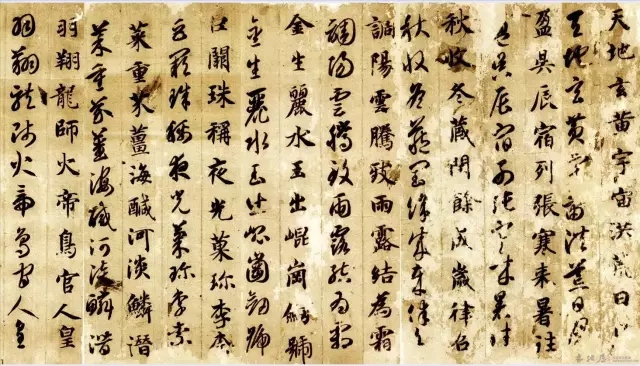 天地玄黄宇宙洪荒日月
天地玄黄宇宙洪荒日月
盈昃辰宿列張寒来暑往
盈昃辰宿列張寒来暑往
秋收冬藏閏餘成歲律吕
秋收冬藏閏餘成歲律吕
調陽雲騰致雨露結為霜
調陽雲騰致雨露結為霜
金生麗水玉出崐崗劔號
金生麗水玉出崐崗劔號
巨闕珠稱夜光菓珍李柰
巨闕珠稱夜光菓珍李柰
菜重芥薑海醎河淡鱗潛
菜重芥薑海醎河淡鱗潛
羽翔龍師火帝鳥官人皇
羽翔龍師火帝鳥官人皇